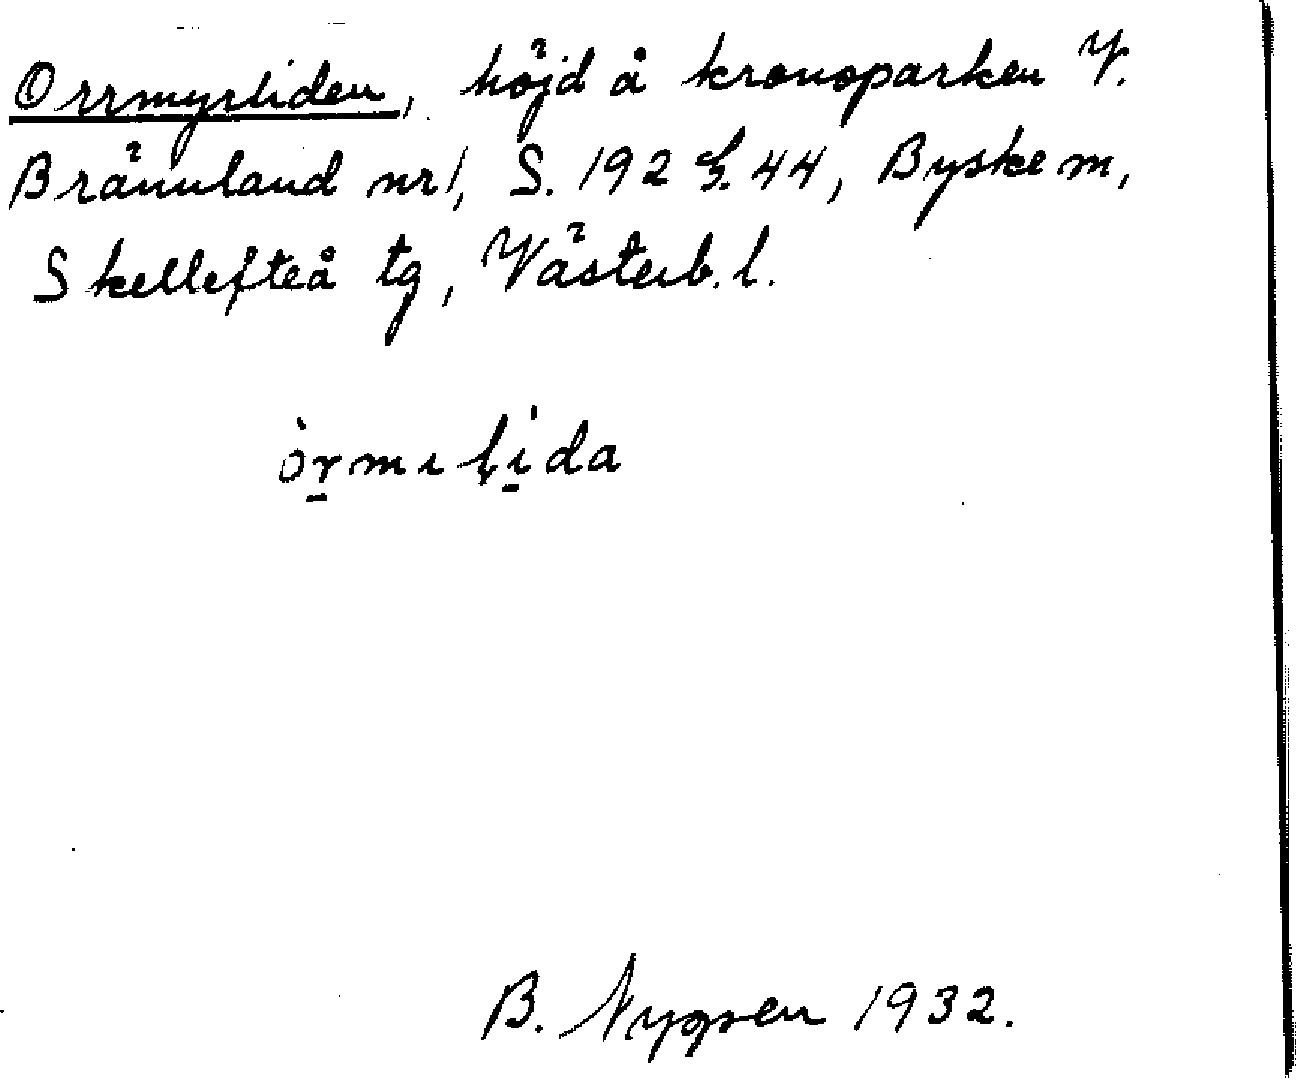 Orrmyrliden, höjd å kronoparken V.
Brännland nr 1, S. 192 h. 44, Byske m,
Skellefteå tg, Västerb. l.
òrmılı̍da
B. Nygren 1932.